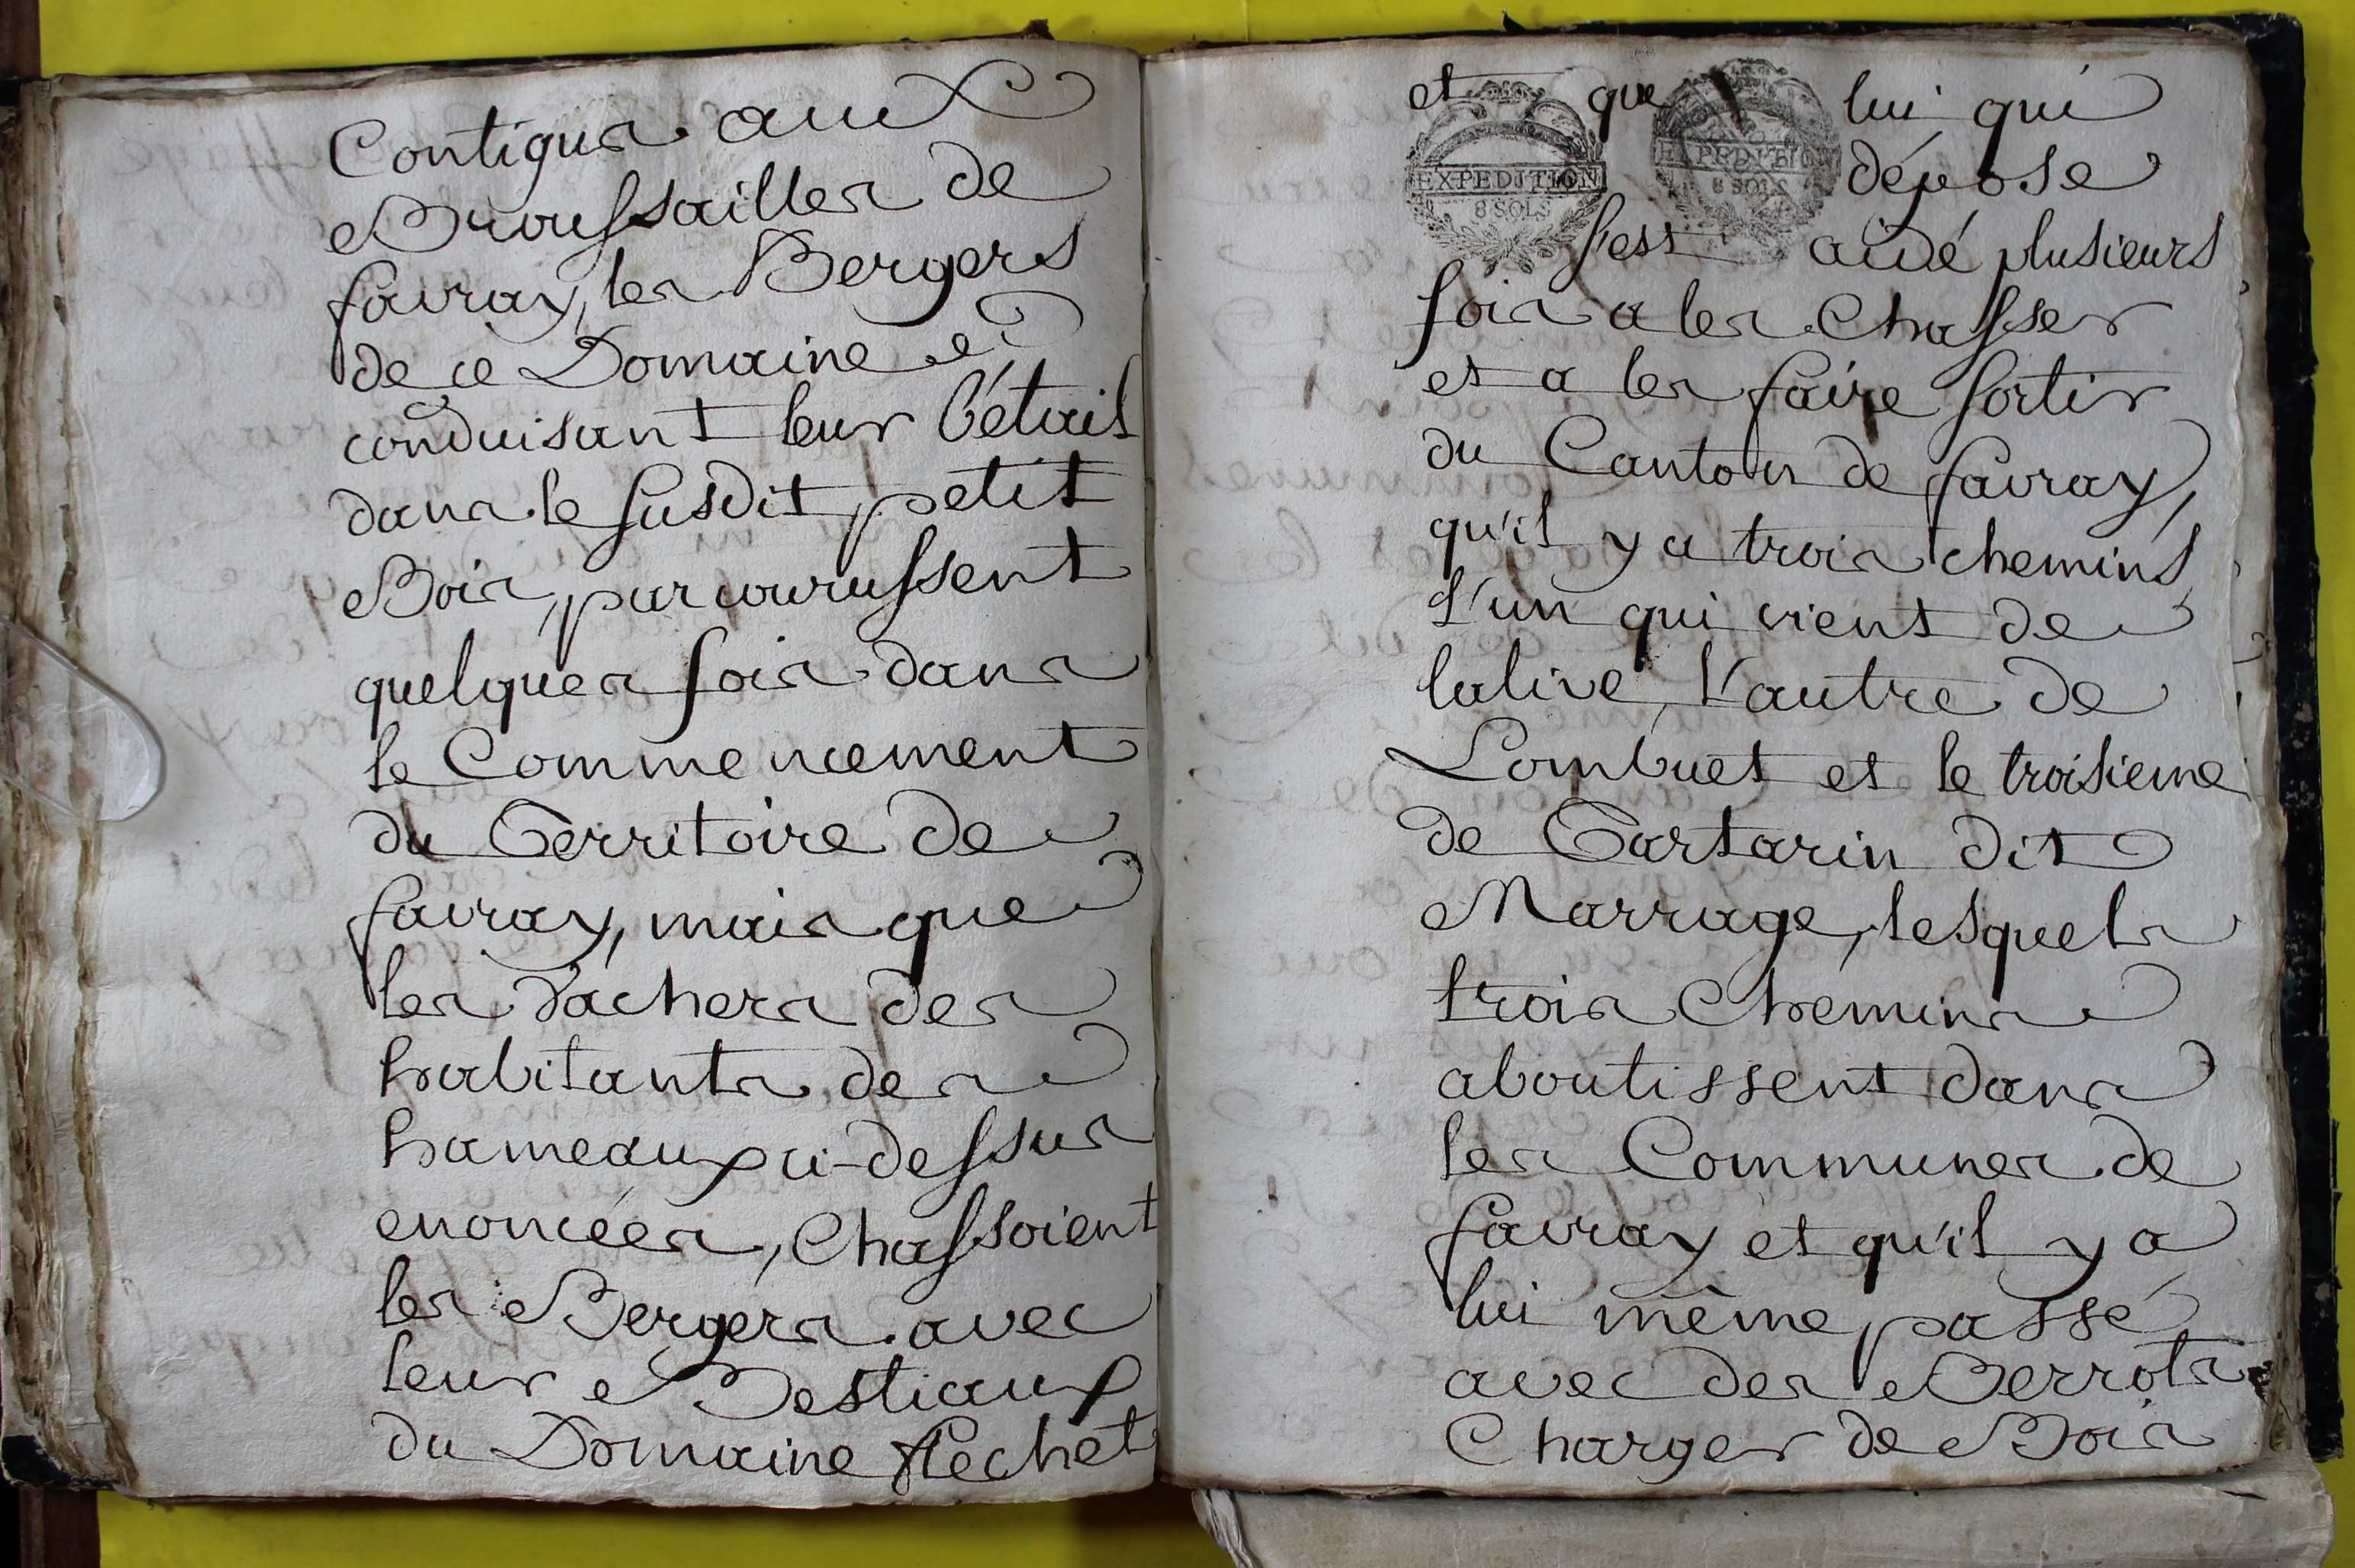 Contigus aux
Broussailles de
favray, les Bergers
de ce Domaine et
conduisant leur bétail
dans le susdit petit
Bois, parcourussent
quelques fois dans
le Commencement
du Territoire de
favray, mais que
les Vachers des
habitants des
hameaux ci-dessus
enoncées, Chassoient
les Bergers avec
leur Bestiaux
du Domaine flechet
et que lui qui
EXPEDITION
8 SOLS
EXPEDITION
8 SOLS
dépose
s'est aidé plusieurs
fois a les Chasser
et a les faire sortir
du Canton de favray,
qu'il y a trois chemins
l'un qui vient de
lalive, l'autre de
Lombuet et le troisieme
de Tartarin dit
Marrage, lesquels
trois Chemins
aboutissent dans
les Communes de
favray et qu'il y a
lui même passé
avec des Berrots
Charger de Bois